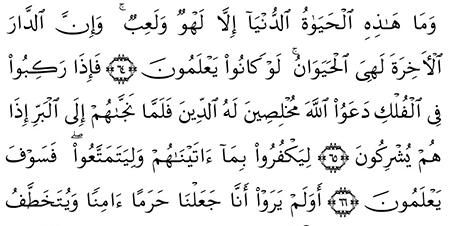 وَمَا هَـٰذِهِ ٱلْحَيَوٰةُ ٱلدُّنْيَآ إِلَّا لَهْوٌ وَلَعِبٌ ۚ وَإِنَّ ٱلدَّارَ
ٱلْأَخِرَةَ لَهِىَ ٱلْحَيَوَانُ ۚ لَوْ كَانُوا۟ يَعْلَمُونَ ﴿٦٤﴾ فَإِذَا رَكِبُوا۟
فِى ٱلْفُلْكِ دَعَوُا۟ ٱللَّهَ مُخْلِصِينَ لَهُ ٱلدِّينَ فَلَمَّا نَجَّىٰهُمْ إِلَى ٱلْبَرِّ إِذَا
هُمْ يُشْرِكُونَ ﴿٦٥﴾ لِيَكْفُرُوا۟ بِمَآ ءَاتَيْنَـٰهُمْ وَلِيَتَمَتَّعُوا۟ ۖ فَسَوْفَ
يَعْلَمُونَ ﴿٦٦﴾ أَوَلَمْ يَرَوْا۟ أَنَّا جَعَلْنَا حَرَمًا ءَامِنًا وَيُتَخَطَّفُ